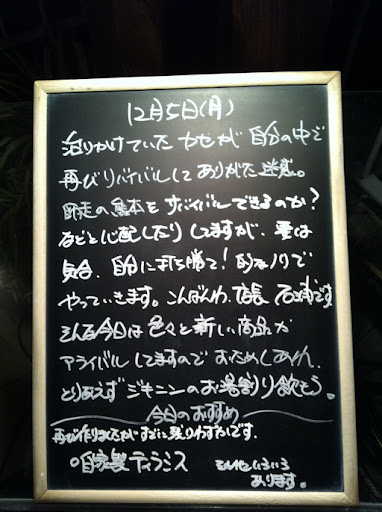 12月5日(月)
治りかけていたカゼが自分の中で
再びリバイバルしてありがた迷惑。
師走の熊本をサバイバルできるのか?
などと心配したりしてますが、要は
気合、自分に打ち勝て!的なノリで
やっていきます。こんばんわ、店長 石浦です
そんな今日は色々と新しい商品が
アライバルしてますのでおためしあれ。
とりあえずジキニンのお湯割り飲もう。
今日のおすすめ
再び作りましたがすでに残りわずかです、
○自家製ティラミス
その他いろいろ
あります。